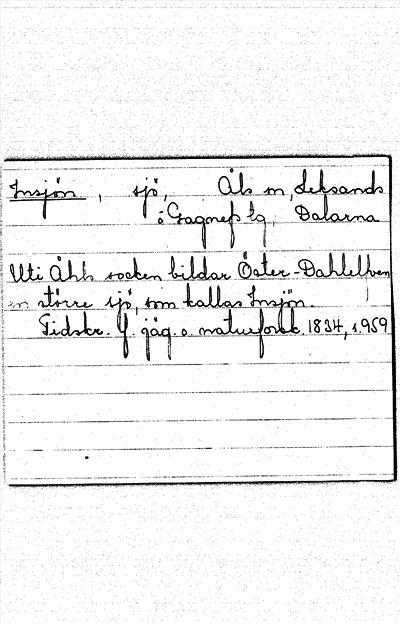 Insjön, sjö, Åls sn, Leksands
o Gagnefs tg, Dalarna
Uti Åhls socken bildar Öster-Dahlelfven
en större sjö, som kallas Insjön.
Tidskr. f. jäg. o. naturforsk. 1834, s. 959